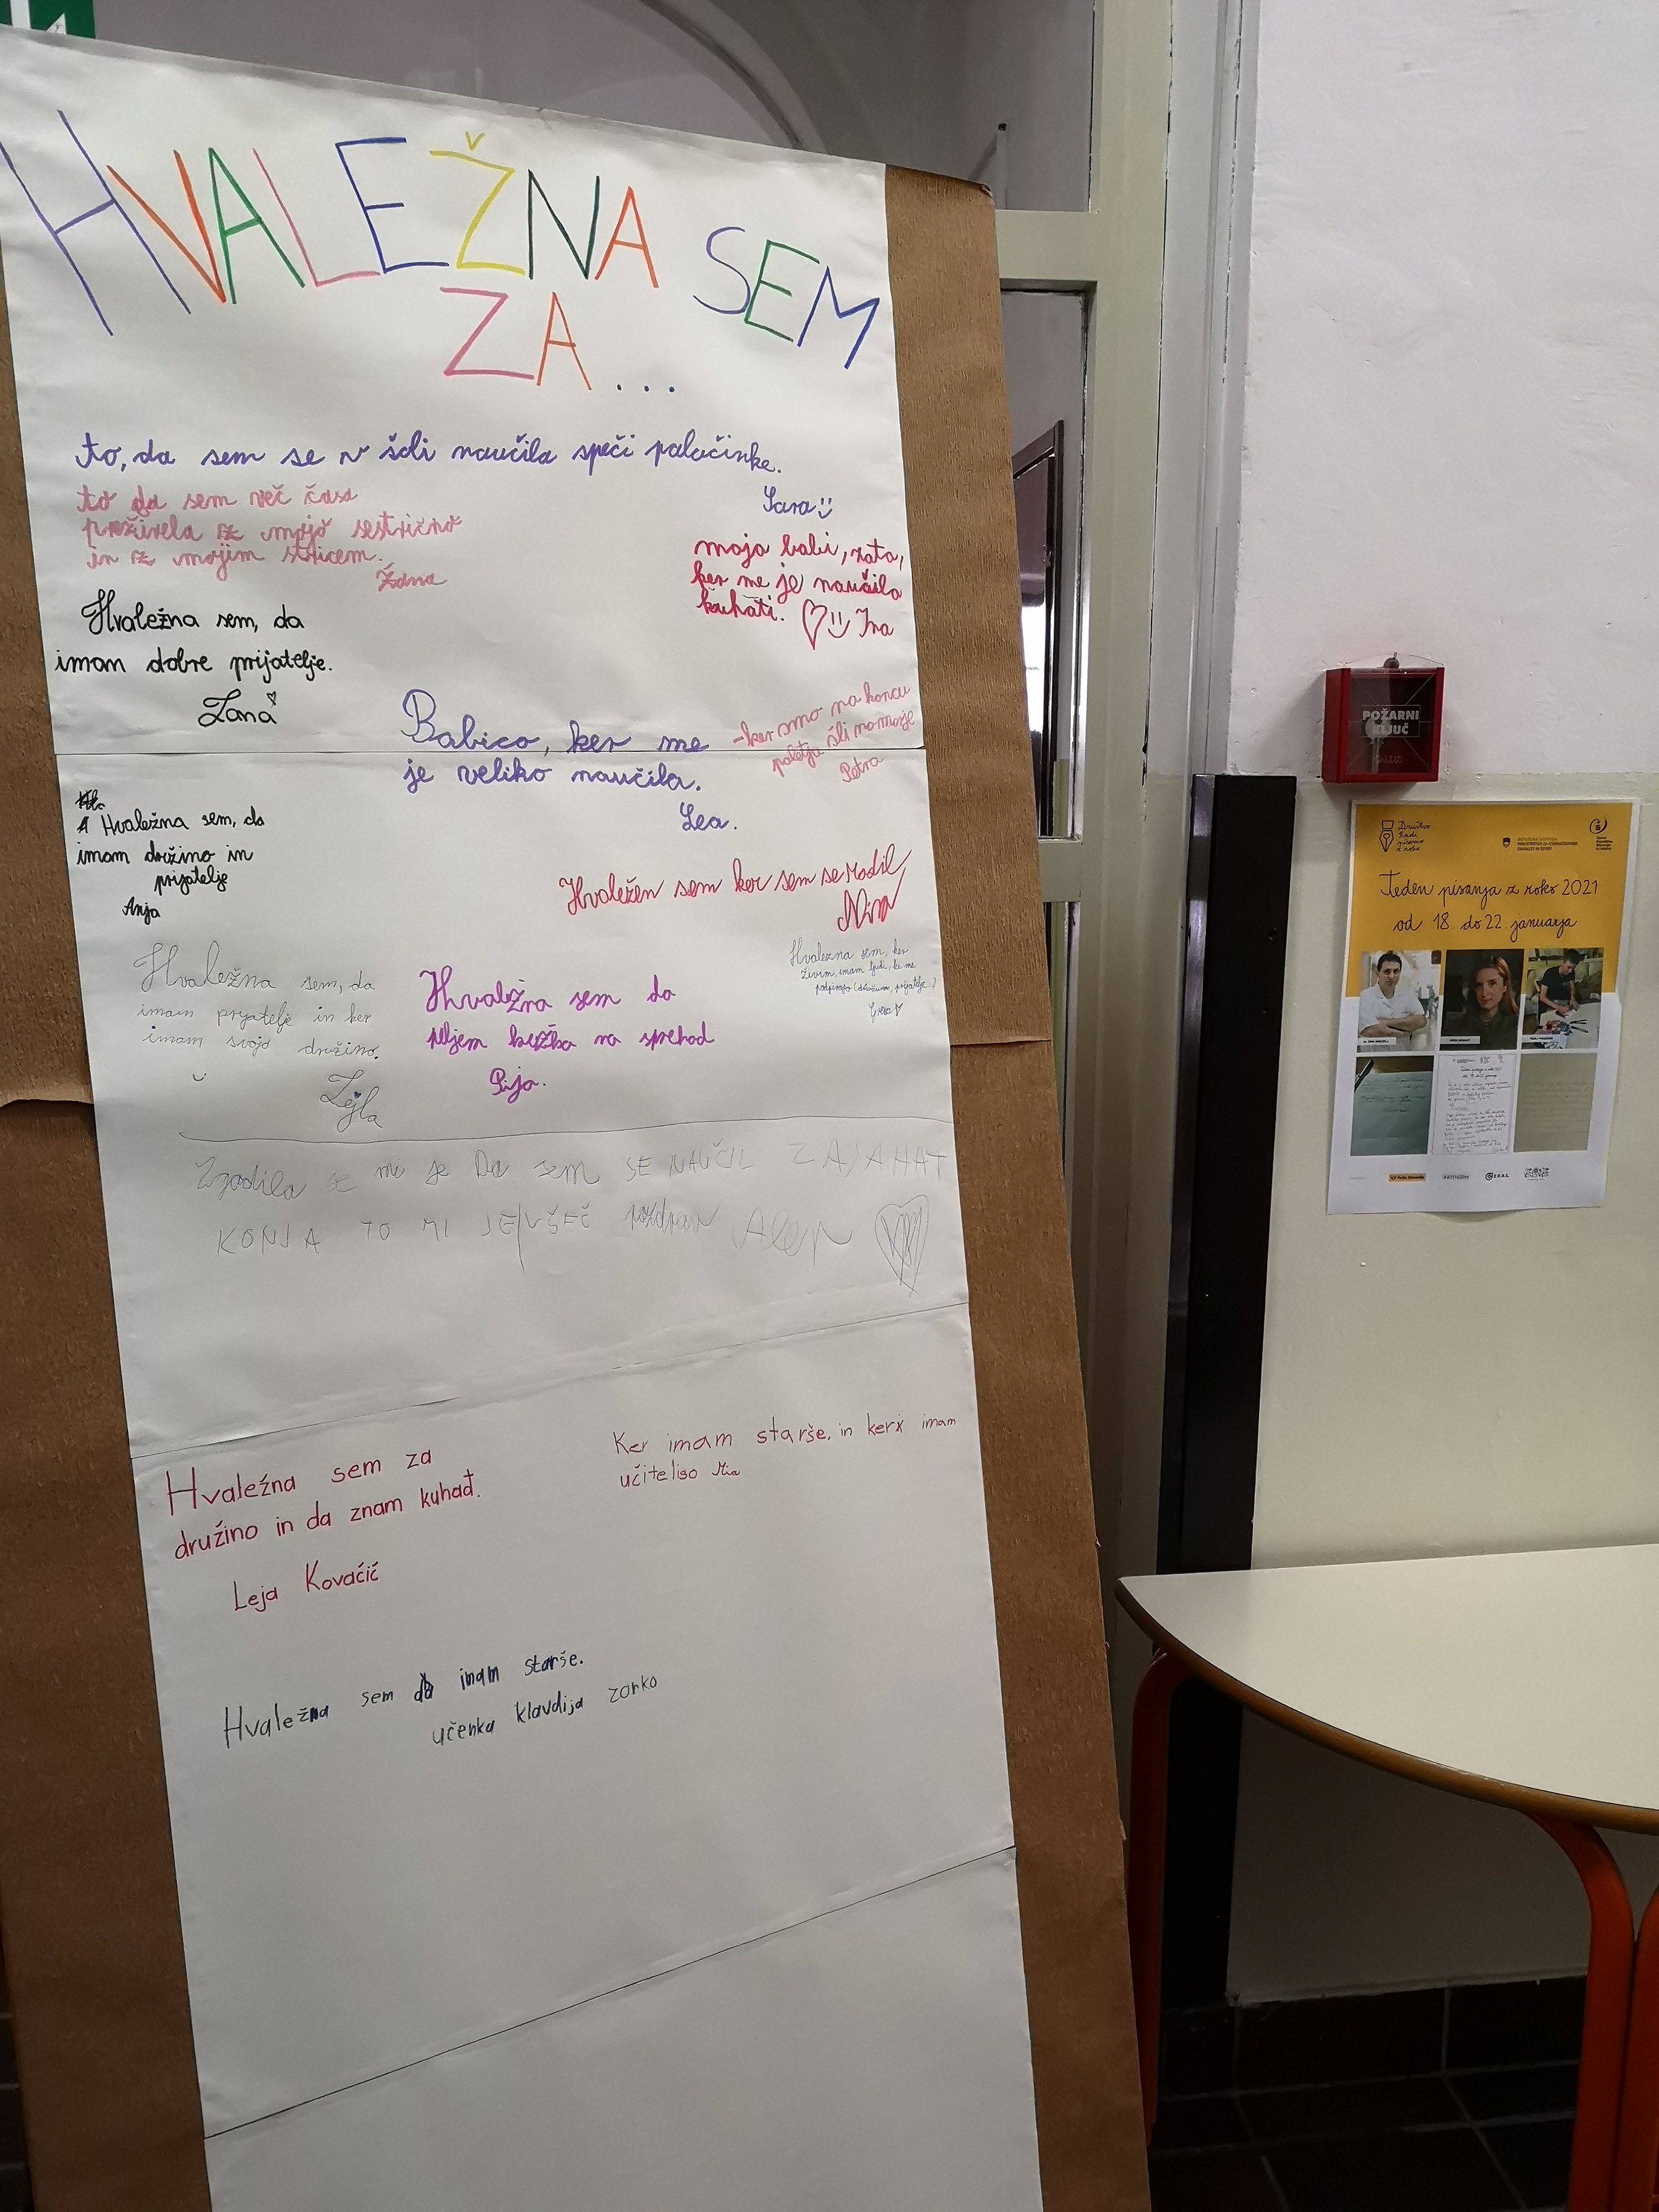 HVALEŽNA SEM
ZA...
to, da sem se v šoli naučila speči palačinke.
Sara
to da sem več časa
preživela iz mojo sestrično
in iz mojim stricem.
moja babi, zato,
ker me je naučila
kuhati. Ina
Hvaležna sem, da
imam dobre prijatelje.
Zana
Babico, ker me
je veliko naučila.
Lea.
-ker smo na koncu
poletja šli na morje
Petra
Hvaležna sem, da
imam držino in
prijatelje
Anja
Hvaležen sem ker sem se rodil
Hvaležna sem, da
imam prijatelje in ker
imam svojo družino.
Zejla
Hvaležna sem da
peljem kužka na sprehod
Pija.
Hvaležna sem, ker
živim, imam ljudi, ki me
podpirajo (družina, prijatelje..)
Zgodila se mi je Da sem SE NAUČIL ZAJAHAT
KONJA TO MI JE VŠEČ pozdrav
Hvaležna sem za
družino in da znam kuhat.
Leja Kovačič
Ker imam starše, in ker imam
učiteliso Mia
Hvaležna sem da imam starše.
učenka klavdija zorko
POŽARNI
KLJUČ
Društvo
Radi
pišemo
z roko
Teden pisanja z roko 2021
od 18. do 22. januarja